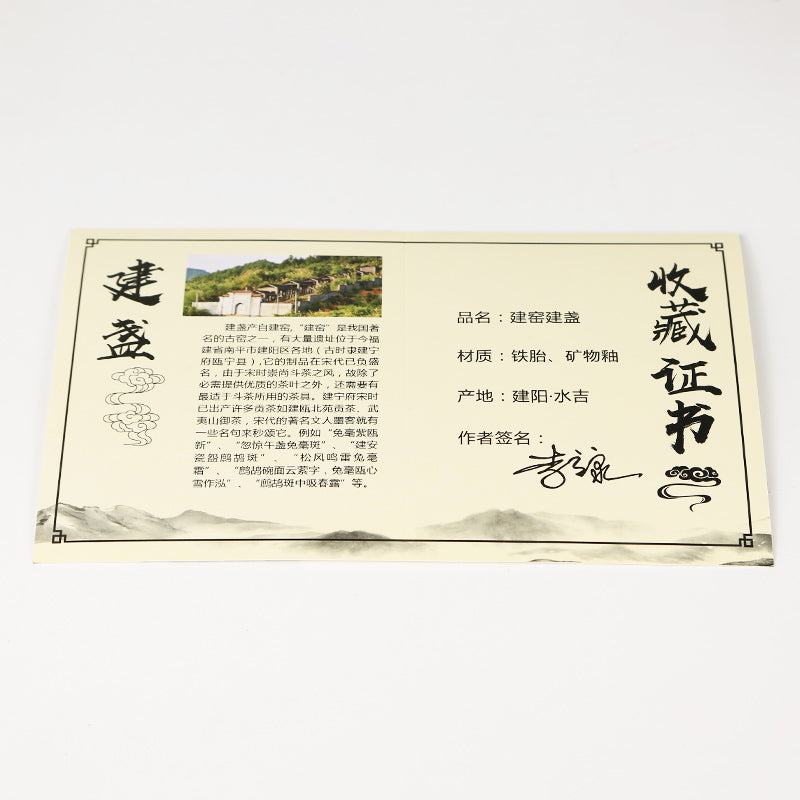 建盏
建盏产自建窑，“建窑”是我国著
名的古窑之一，有大量遗址位于今福
建省南平市建阳区各地（古时隶建宁
府瓯宁县），它的制品在宋代已负盛
名，由于宋时崇尚斗茶之风，故除了
必需提供优质的茶叶之外，还需要有
最适于斗茶所用的茶具。建宁府宋时
已出产许多贡茶如建瓯北苑贡茶、武
夷山御茶，宋代的著名文人墨客就有
一些名句来秒颂它。例如“兔毫紫瓯
新”、“忽惊午盏兔毫斑”、“建安
瓷盌鹧鸪斑”、“松风鸣雷兔毫
霜”、“鹧鸪碗面云萦字，兔毫瓯心
雪作泓”、“鹧鸪斑中吸春露”等。
收藏证书
品名：建窑建盏
材质：铁胎、矿物釉
产地：建阳·水吉
作者签名：